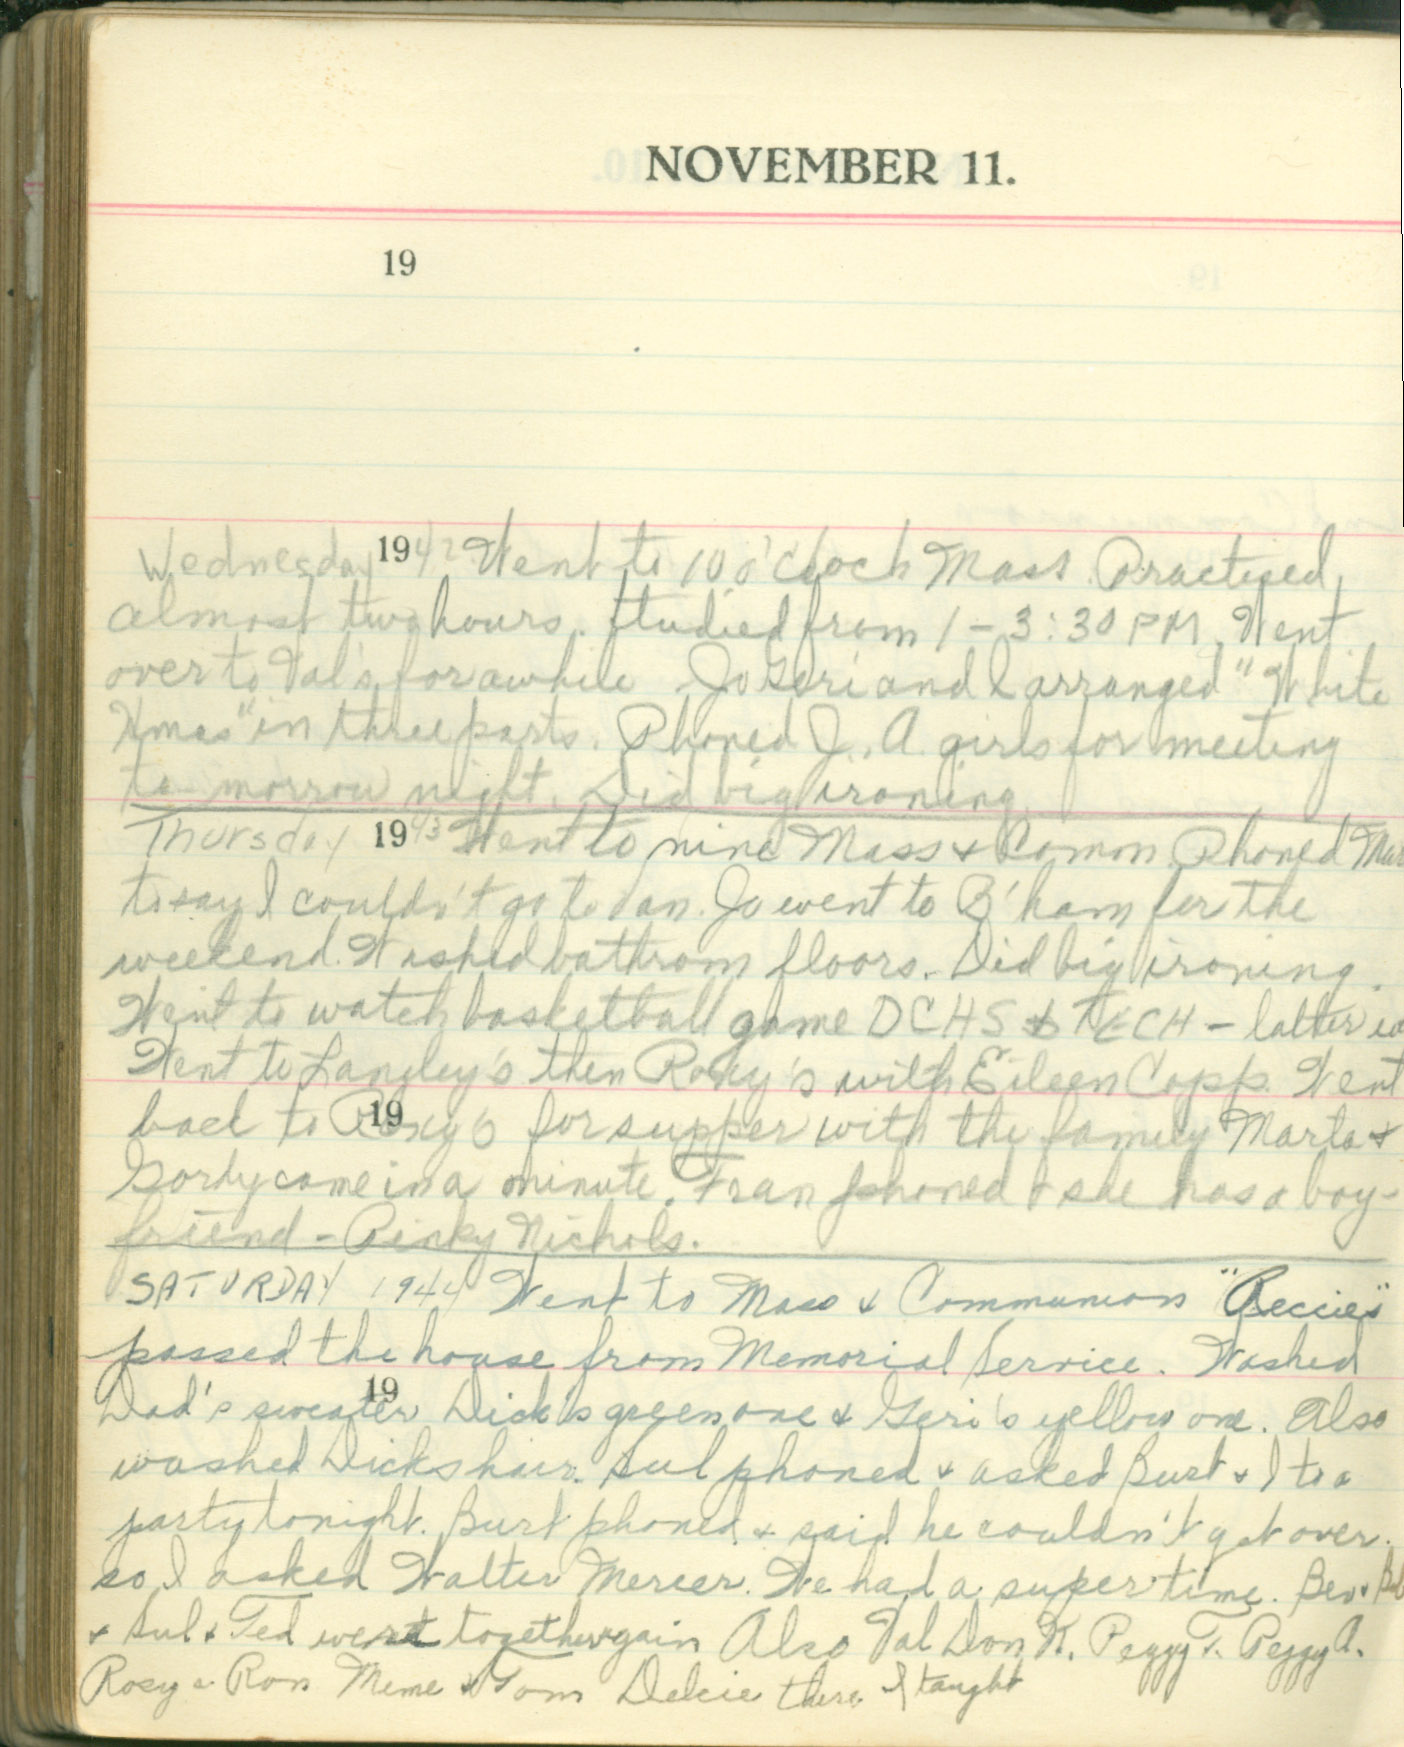 NOVEMBER 11.
19
Wednesday 1942 Went to 10 o'clock Mass. Practised
almost two hours. Studied from 1 - 3:30 PM. Went
over to Val's for awhile Jo Geri and I arranged "White
Xmas" in three parts. Phoned J. A. girls for meeting
to-morrow night. Did big ironing
Thursday 1943 Went to nine Mass & Comm. Phoned
to say I couldn't go to Van. Jo went to B'ham for the
weekend. Washed bathroom floors. Did big ironing.
Went to watch basketball game DCHS & TECH - latter
Went to Langley's then Roxy's with Eileen Copp. Went
19
back to Roxy's for supper with the family Marta &
Gordy came in a minute. Fran phoned & she has a boy-
friend - Pinky Nichols.
SATURDAY 1944 Went to Mass & Communion "Reccies"
passed the house from Memorial Service. Washed
19
Dad's sweater Dick's green one & Geri's yellow one. Also
washed Dicks hair. Sul phoned & asked Burt & I to a
party tonight. Burt phoned & said he couldn't get over.
so I asked Walter Mercer. We had a super time. Bev &
& Sul & Ted went together again Also Val Don K. Peggy T. Peggy A.
Rosy & Ron Meme & Tom Delcie there I taught